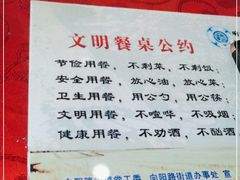 文明餐桌公约
节俭用餐，不剩菜，不剩饭；
安全用餐，放心油，放心蔬；
卫生用餐，用公勺，用公筷；
文明用餐，不喧哗，不吸烟；
健康用餐，不劝酒，不酗酒
向阳路街道办事处 宣